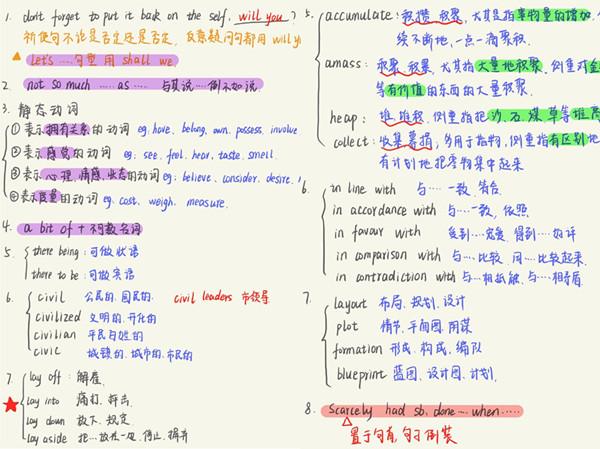 1. don't forget to put it back on the self, will you?
祈使句不论是否定还是肯定,反意疑问句都用 will you
Let's ……句型用 shall we
2. not so much …… as …… 与其说……倒不如说
3. 静态动词
① 表示拥有关系的动词 eg: have、belong、own、possess、involve
② 表示感觉的动词 eg: see、feel、hear、taste、smell
③ 表示心理、情感、状态的动词 eg: believe、consider、desire、
④ 表示度量的动词 eg: cost、weigh、measure.
4. a bit of + 不可数名词
5. there being: 可做状语
there to be: 可做宾语
6. civil 公民的、国民的. civil leaders 市领导
civilized 文明的、开化的
civilian 平民百姓的
civic 城镇的、城市的、市民的
7. lay off: 解雇、
lay into 痛打、抨击、
lay down 放下、规定、
lay aside 把…放在一边、停止、摒弃
5. accumulate: 积攒 积聚, 尤其是指事物量的增加
续不断地,一点一滴聚积.
amass: 积聚 积累, 尤其指大量地积聚, 侧重对金
等有价值的东西的大量积聚.
heap: 堆、堆积、侧重指把沙、石、煤、草等堆高
collect: 收集募捐, 多用于指物, 侧重指有区别地
有计划地把零物集中起来
6. in line with 与……一致、符合
in accordance with 与……一致、依照
in favour with 受到…宠爱、得到…好评
in comparison with 与…比较、同…比较起来.
in contradiction with 与…相抵触、与…相矛盾.
7. layout 布局、规划、设计
plot 情节、平面图、阴谋
formation 形成、构成、编队
blueprint 蓝图、设计图、计划、
8. Scarcely had sb. done … when ……
置于句首,句子倒装